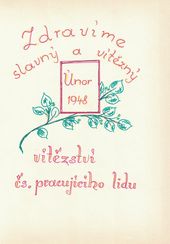 Zdravíme
slavný a vítězný
Únor
1948
vítězství
čs. pracujícího lidu